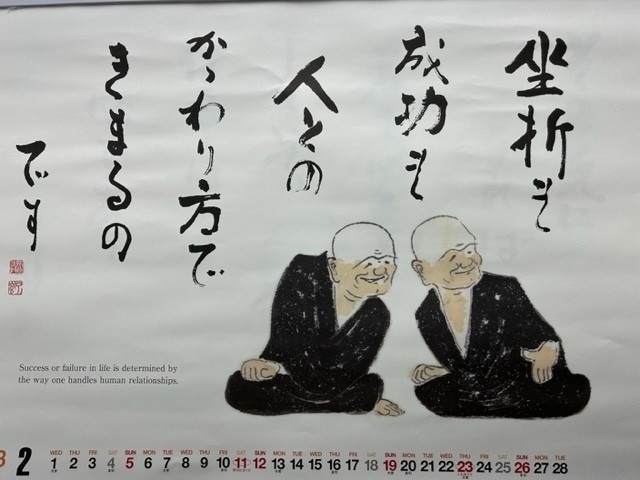 坐折も
成功も
人との
かゝわり方で
きまるの
です
Success or failure in life is determined by
the way one handles human relationships.
2
WED THU FRI SAT SUN MON TUE WED THU FRI SAT SUN MON TUE WED THU FRI SAT SUN MON TUE WED THU FRI SAT SUN MON TUE
1 2 3 4 5 6 7 8 9 10 11 12 13 14 15 16 17 18 19 20 21 22 23 24 25 26 27 28